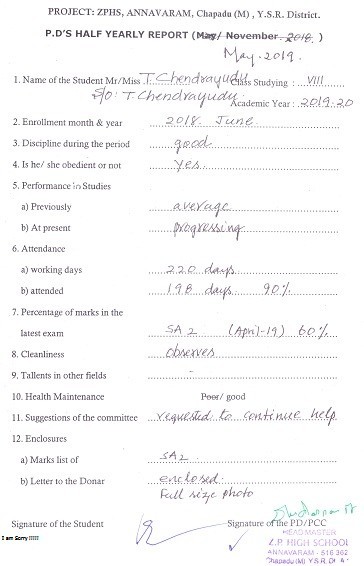 PROJECT: ZPHS, ANNAVARAM, Chapadu (M) , Y.S.R. District.
P.D'S HALF YEARLY REPORT (May/ November 2018 )
May-2019.
1. Name of the Student Mr/Miss T. Chendrayudu Class Studying : VIII
S/o: T. Chendrayudu Academic Year : 2019-20
2. Enrollment month & year 2018 June
3. Discipline during the period good
4. Is he/ she obedient or not Yes.
5. Performance in Studies
a) Previously average
b) At present progressing
6. Attendance
a) working days 220 days
b) attended 198 days 90%
7. Percentage of marks in the
latest exam SA2 (April-19) 60%
8. Cleanliness observes
9. Tallents in other fields -
10. Health Maintenance Peer/ good
11. Suggestions of the committee requested to continue help
12. Enclosures
a) Marks list of SA2
b) Letter to the Donar enclosed
Full size photo
Signature of the Student Signature of the PD/PCC
I am Sorry !!!!!
HEAD MASTER
Z.P. HIGH SCHOOL
ANNAVARAM - 516 362
Chapadu (M) Y.S.R. Dt